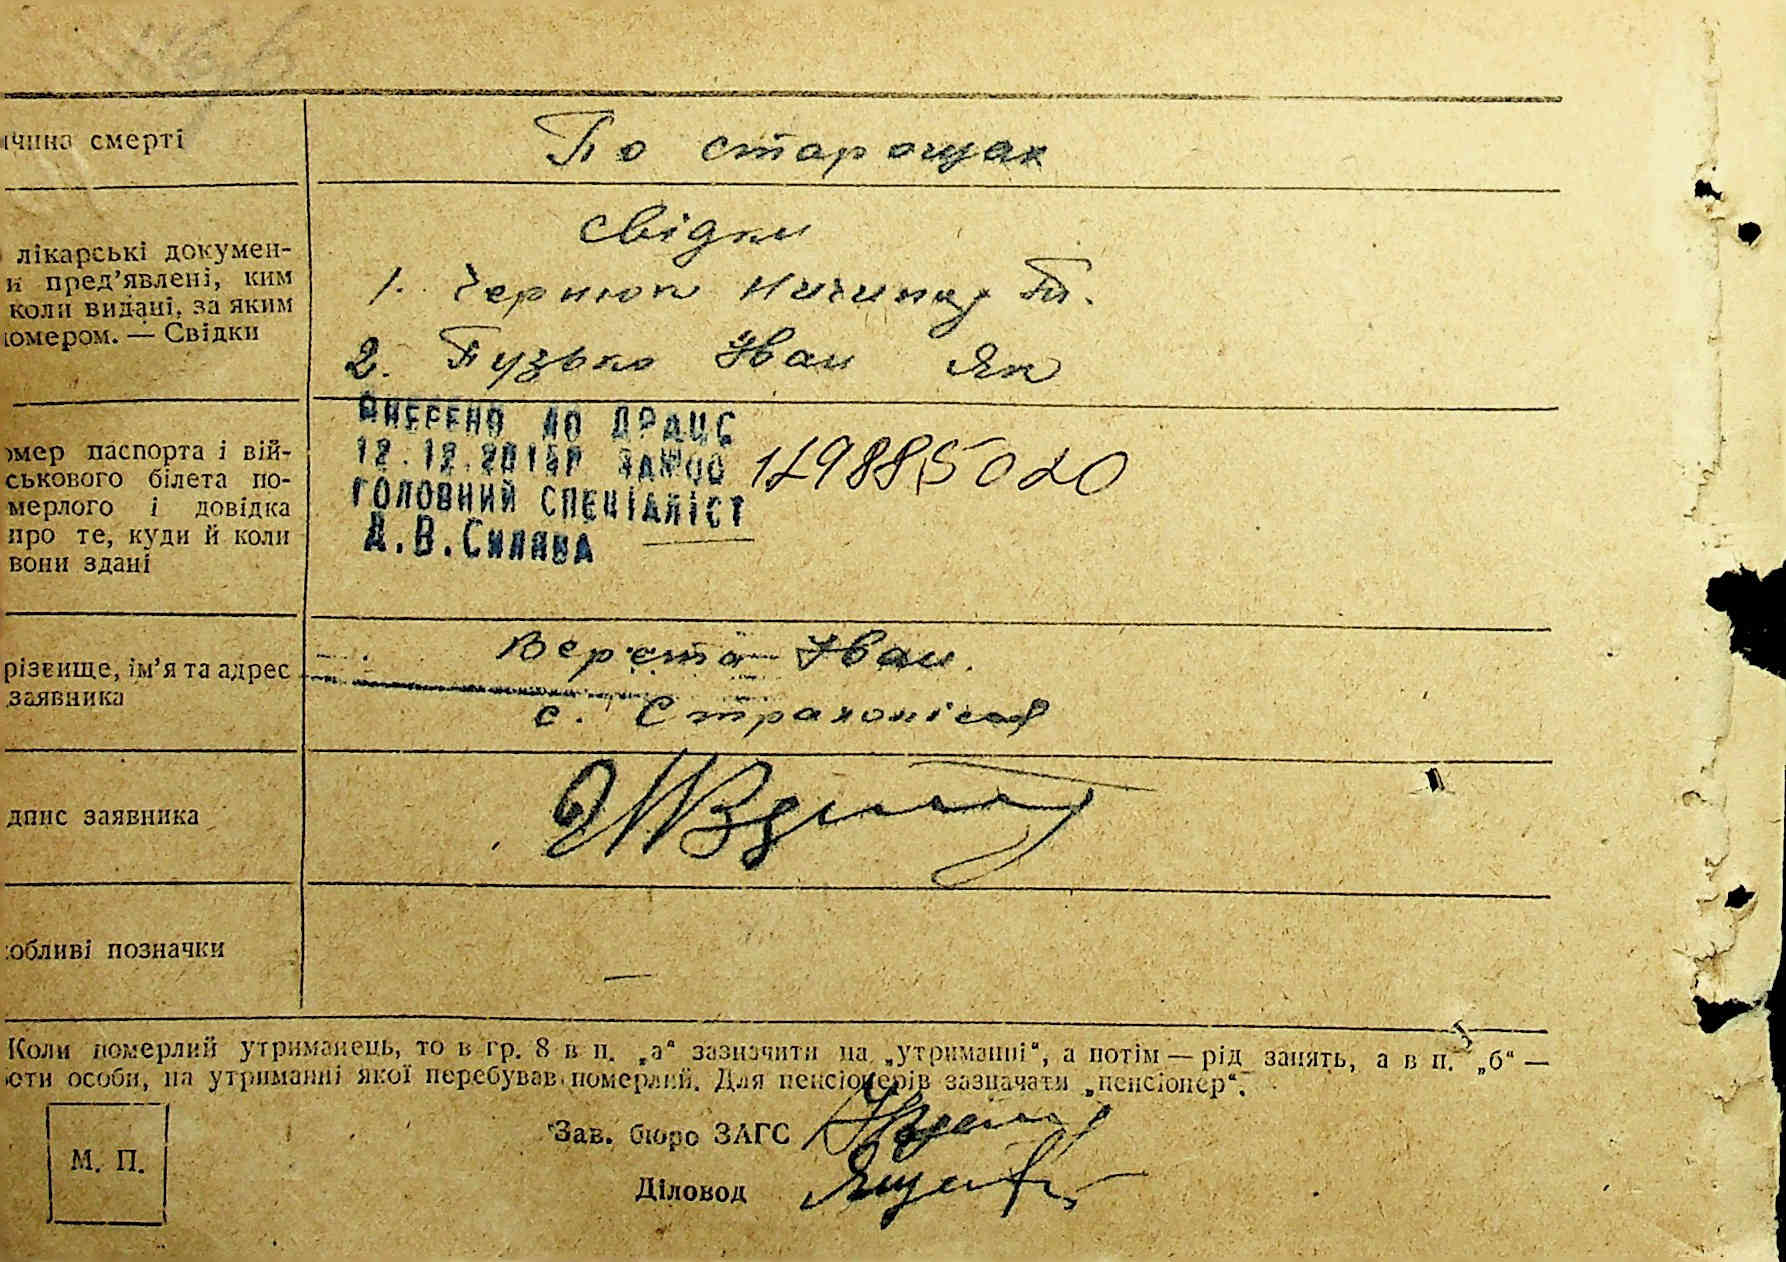 ичина смерті
По старощах
лікарські докумен-
и пред’явлені, ким
коли видані, за яким
номером. — Свідки
свідки
1. Чернюк Ничипір П.
2. Пузько Іван Як
омер паспорта і вій-
ськового білета по-
мерлого і довідка
про те, куди й коли
вони здані
ВНЕРЕНО ДО ДРАЦС
12.12.201 Р ЗА №00
ГОЛОВНИЙ СПЕЦІАЛІСТ
Д.В.Силява
різвище, ім’я та адрес
заявника
Верета Іван.
с. Страхолісся
дпис заявника
обливі позначки
—
Коли померлий утриманець, то в гр. 8 в п. „а“ зазначити на „утриманні“, а потім — рід занять, а в п. „б“ —
ости особи, на утриманні якої перебував померлий. Для пенсіонерів зазначати „пенсіонер“.
Зав. бюро ЗАГС
М. П.
Діловод